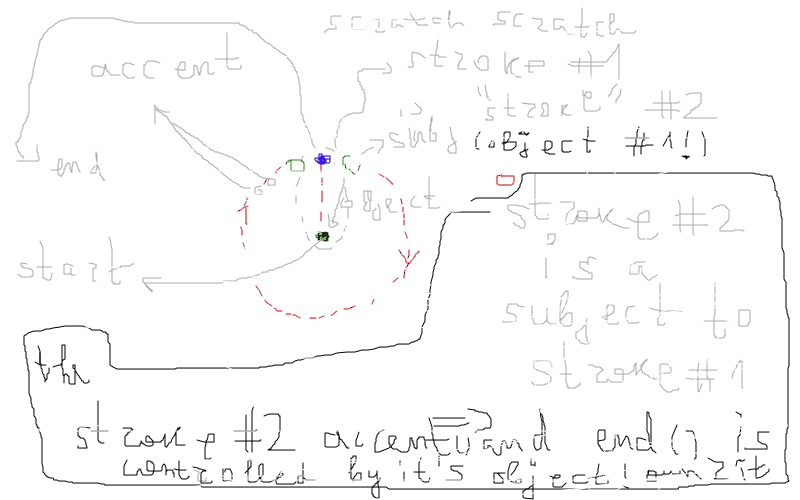 scratch scratch
stroke #1
accent
is
"stroke" #2
subj (object #1!)
end
object
stroke #2
start
is a
subject to
stroke #1
thr
stroke #2 accent() and end() is
controlled by it's object